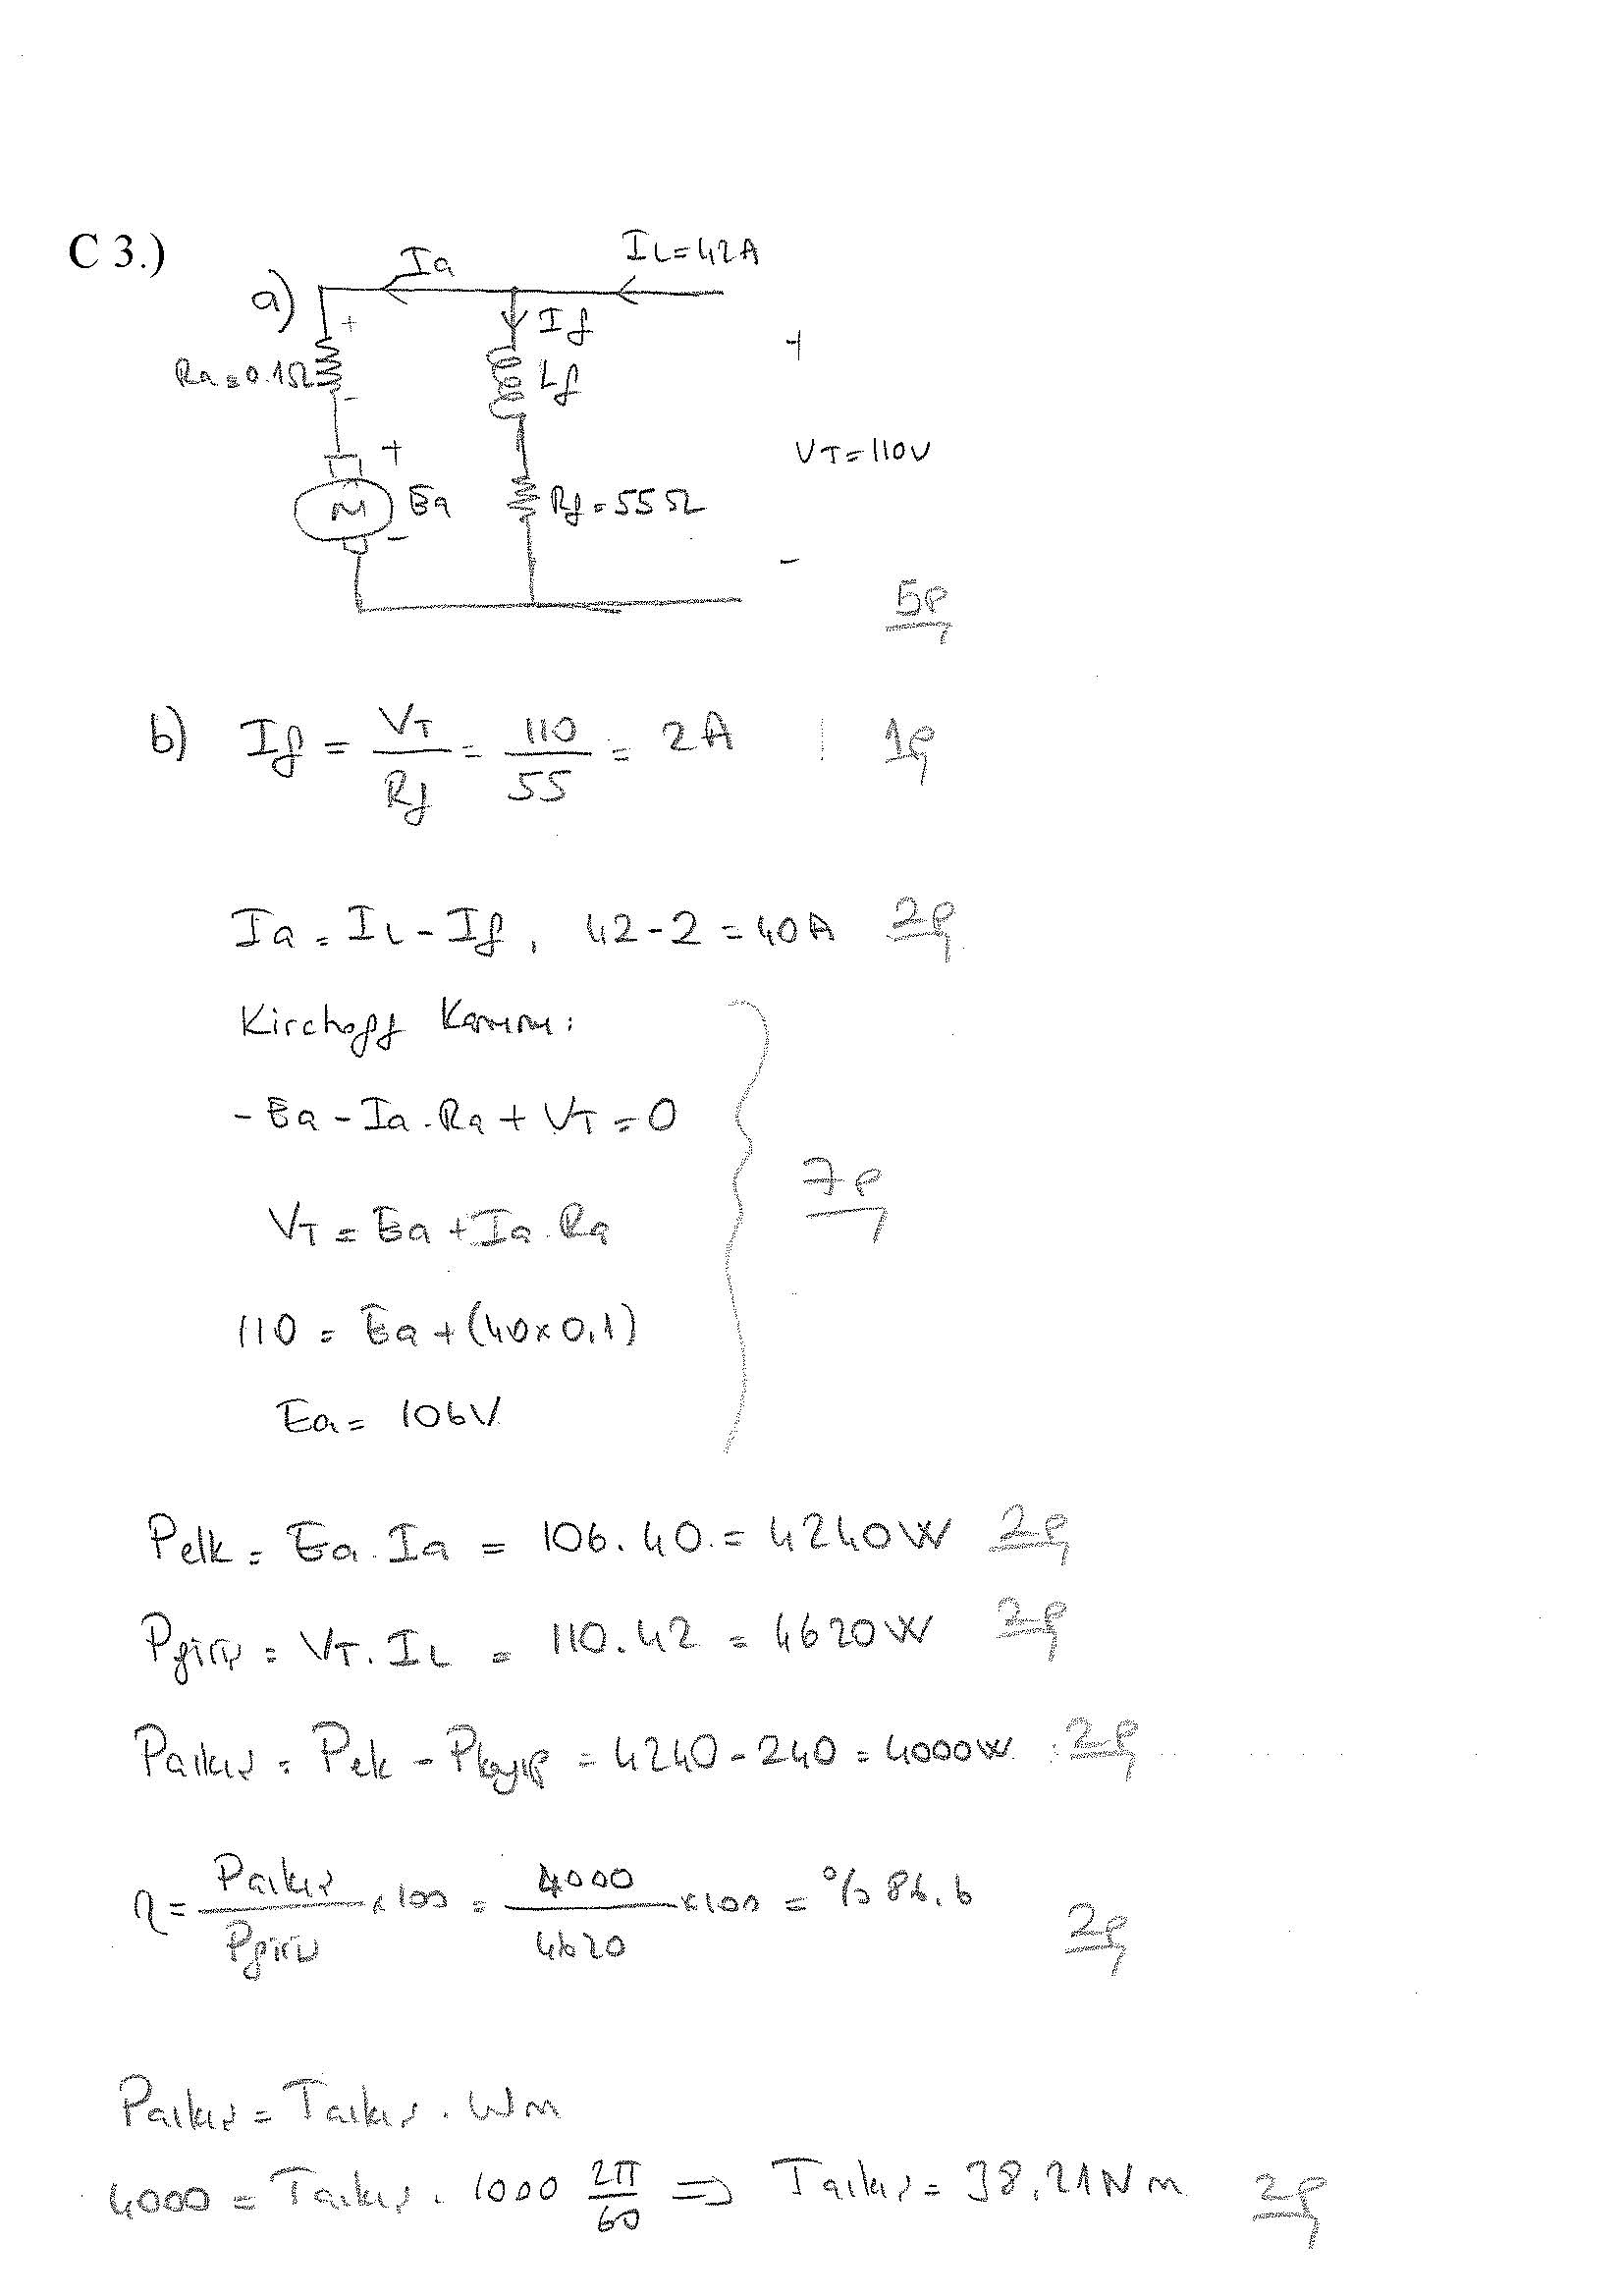 C 3.)
a)
Ia
IL=42A
+
If
Ra=0.1Ω
Lf
+
-
+
VT=110V
M
Ea
Rf=55Ω
-
-
5p
b) If = VT/Rf = 110/55 = 2A 1p
Ia = IL - If, 42-2 = 40A 2p
Kirchoff Kanunu:
-Ea - Ia.Ra + VT = 0
7p
VT = Ea + Ia.Ra
110 = Ea + (40x0,1)
Ea = 106V
Pelk = Ea.Ia = 106.40 = 4240W 2p
Pgiriş = VT.IL = 110.42 = 4620W 2p
Pçıkış = Pelk - Pkayıp = 4240-240 = 4000W 2p
η = Pçıkış/Pgiriş x100 = 4000/4620 x100 = %86.6 2p
Pçıkış = Tçıkış . Wm
4000 = Tçıkış . 1000 2π/60 => Tçıkış = 38,21Nm 2p